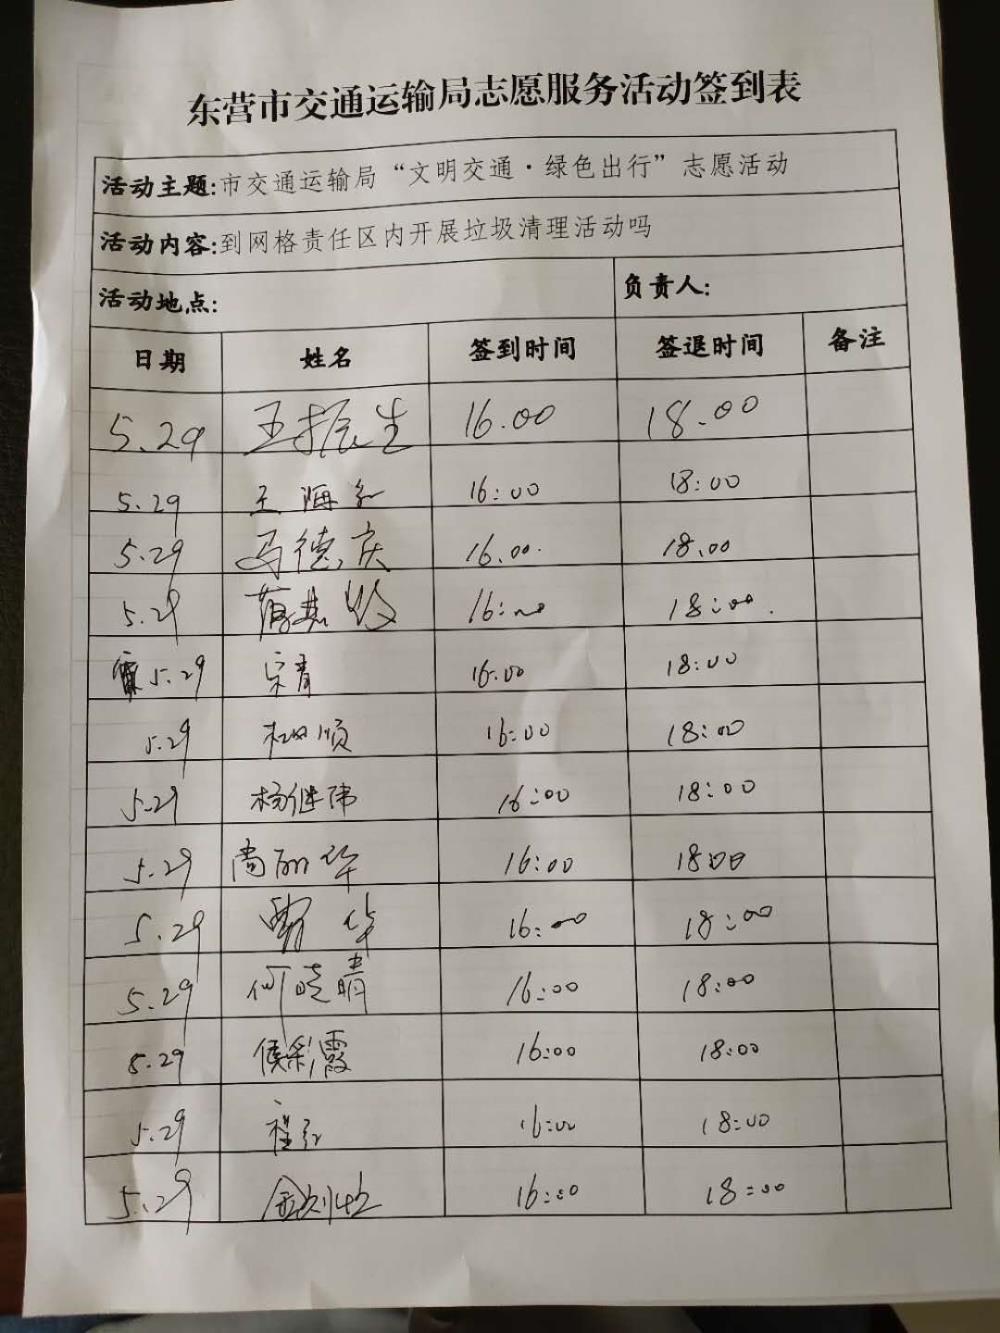 东营市交通运输局志愿服务活动签到表
活动主题:市交通运输局“文明交通·绿色出行”志愿活动
活动内容:到网格责任区内开展垃圾清理活动吗
活动地点: 负责人:
日期 姓名 签到时间 签退时间 备注
5.29 王振生 16.00 18.00
5.29 王海 16:00 18:00
5.29 马德庆 16.00. 18.00
5.29 16:00 18:00.
5.29 宋青 16:00 18:00
5.29 顺 16:00 18:00
5.29 杨继伟 16:00 18:00
5.29 尚丽华 16:00 18:00
5.29 华 16:00 18:00
5.29 何晓晴 16:00 18:00
5.29 侯彩霞 16:00 18:00
5.29 程红 16:00 18:00
5.29 16:00 18:00